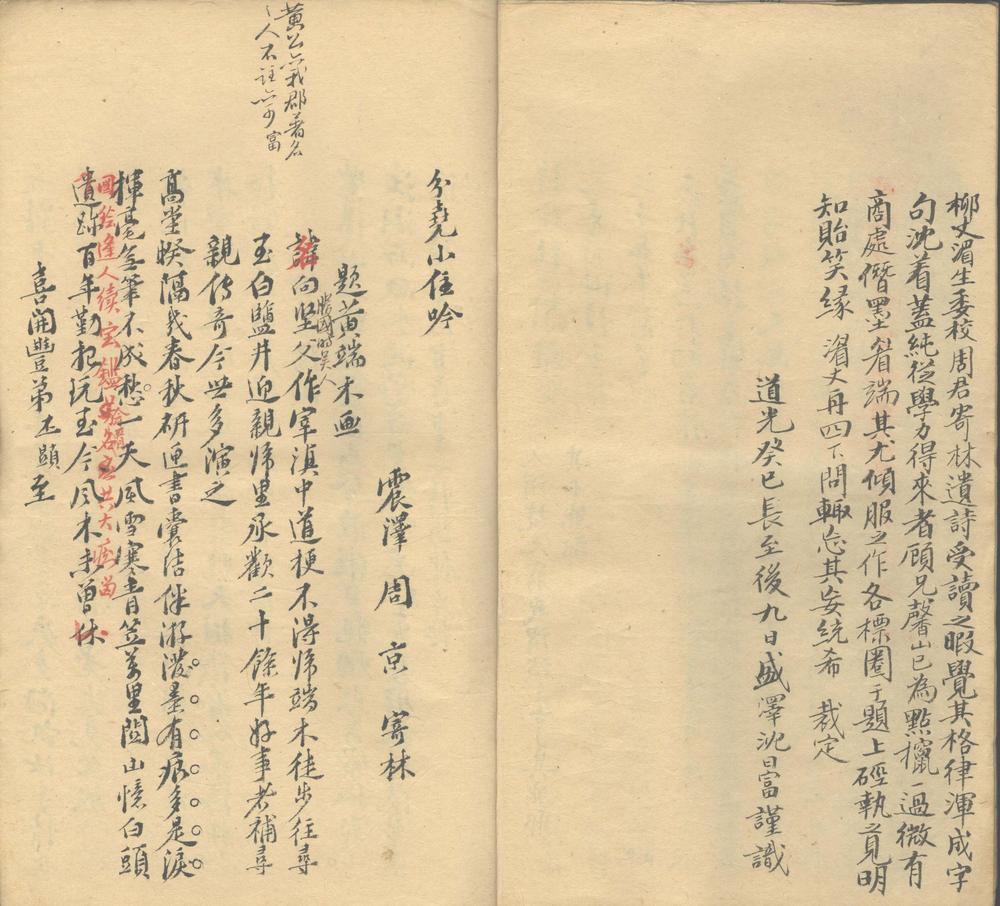 柳丈湄生委校周君寄林遺詩受讀之暇覺其格律渾成字
句沈着蓋純從學力得來者顧兄馨山已為點攛一過微有
商處僭墨者端其尤傾服之作各標圈于題上硜執竟明
知貽笑緣湄丈再四下問輒忘其妄統希 裁定
道光癸巳長至後九日盛澤沈日富謹識
黃公我郡著名
人不註亦可 富
分堯小住吟
震澤 周 京 寄林
題黃端木画
諱向坚父作宰滇中道梗不得歸端木徒步往尋
勝國時吴人
玉白鹽井迎親歸里承歡二十餘年好事者補尋
親傳奇今世多演之
高堂暌隔幾春秋研匣書囊沽伴游潑墨有痕多是淚
揮毫無筆不成愁一天風雪寒青笠萬里關山憶白頭
遺跡百年勤把玩玉今風木未曾休
喜開豐弟丕顯至